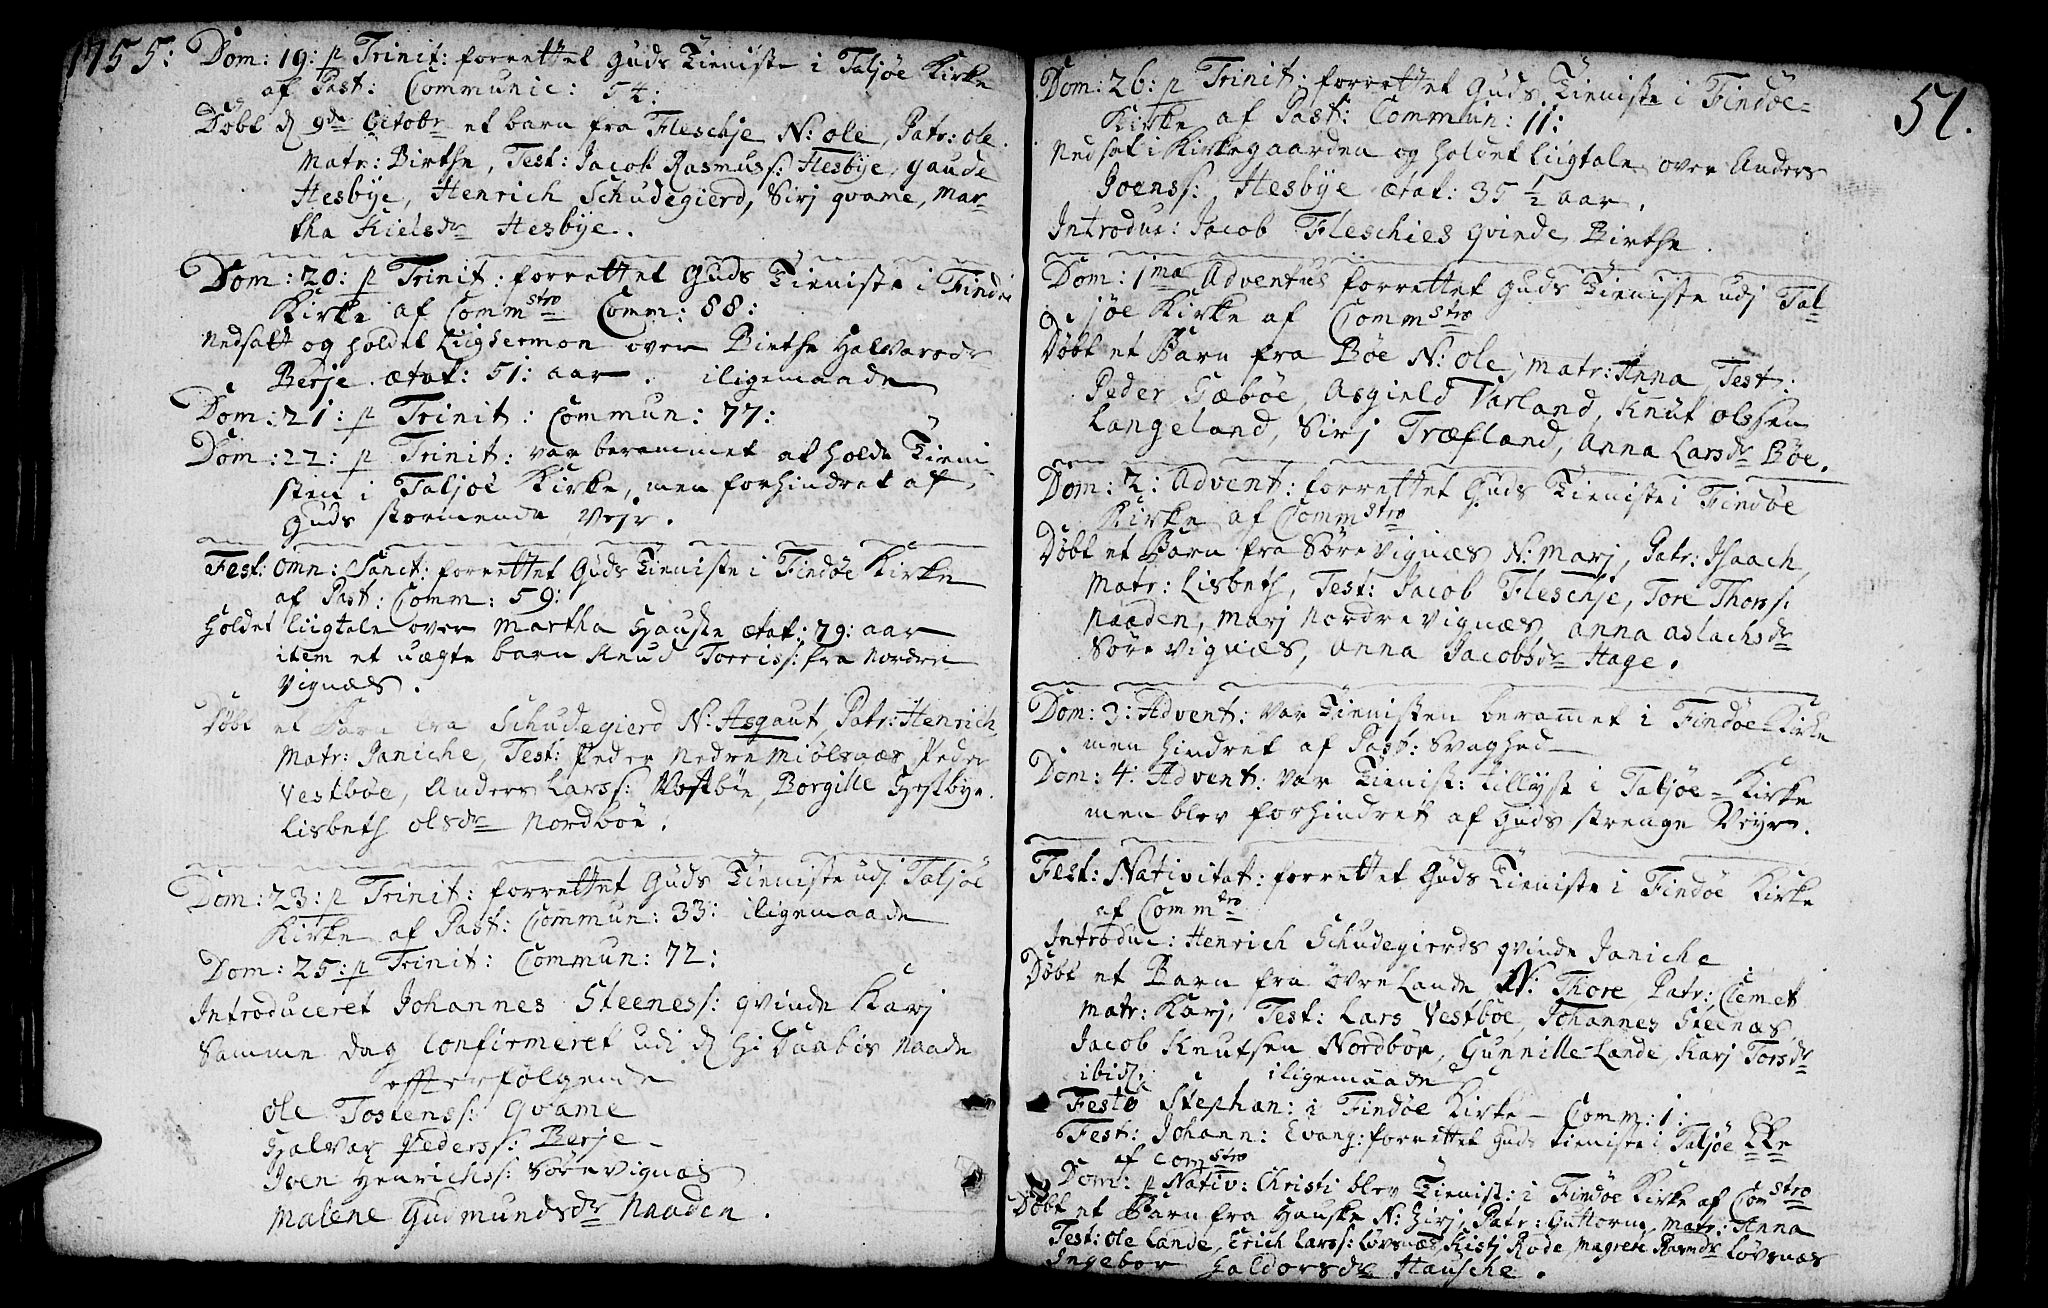 1755: Dom: 19: p Trinit: forrettet Guds Tieniste i Taljøe Kirke
af Past: Communic: 54:
Døbt d 9de Octobr et barn fra Fleschje N: ole, Patr: ole.
Matr: Birthe, Test: Jacob Rasmuss: Hesbÿe, gaude
Hesbÿe, Henrich Schudegierd, Sirj qvame, Mar-
tha Kielsdr Hesbÿe.
Dom: 20: p Trinit: forrettet Guds Tieniste i Findøe
Kirke af Commstro Comm: 88:
Nedsatt og holdet Liigsermon over Birthe Halvarsdr
Berje. ætat: 51: aar. iligemaade
Dom: 21: p Trinit: Commun: 77:
Dom: 22: p Trinit: var berammet at holde Tieni-
sten i Taljøe Kirke, men forhindret af
Guds stormende Vejr.
Fest: Omn: Sanct: forrettet Guds Tieniste i Findøe Kirke
af Past: Comm: 59:
Holdet liigtale over Martha Hauske ætat: 79: aar
item et uægte barn Knud Torriss: fra Nordre
Vignæs.
Døbt et Barn fra Schudegierd N: Asgaut, Patr: Henrich,
Matr: Janiche, Test: Peder Nedre Miølsnæs, Peder
Vestbøe, Anders Larss: Vestbøe, Borgille Hesbÿe.
Lisbeth olsdr Nordbøe.
Dom: 23: p Trinit: forrettet Guds Tieniste udj Taljøe
Kirke af Past: Commun: 33: iligemaade
Dom: 25: p Trinit: Commun: 72:
Introduceret Johannes Steeness: qvinde Karj
Samme dag Confirmeret udi d Hi Daabis Naade
efterfølgende
Ole Tostenss: Qvame
Halvar Pederss: Berje
Iven Henrichss: Sørevignæs
Malene Gudmundsdr Naaden.
51.
Dom: 26: p Trinit: forrettet Guds Tieniste i Findøe-
Kirke af Past: Commun: 11:
Nedsat i Kirkegaarden og holdet liigtale over Anders
Joenss: Hesbÿe ætat: 35 1/2 aar.
Introdue: Jacob Fleschies qvinde Birthe.
Dom: 1ma Adventus forrettet Guds Tieniste udj Tal-
jøe Kirke af Commstro
Døbt et Barn fra Bøe N: Ole, Matr: Anna, Test:
Peder Gæbøe, Asgield Varland, Knut Olssen
Langeland, Sirj Træfland, Anna Larsdr Bøe.
Dom: 2: Advent: forrettet Guds Tieniste i Findøe
Kirke af Commstro
Døbt et Barn fra Sørevignæs N: Marj, Patr: Isaach,
Matr: Lisbeth, Test: Jacob Fleschje, Tore Thorss:
Naaden, Marj Nordrevignæs, Anna Aslachsdr
Sørevignæs, Anna Jacobsdr Hage.
Dom: 3: Advent: var Tienisten berammet i Findøe Kirke
men hindret af Past: Svaghed
Dom: 4: Advent: var Tienist: tillÿst i Taljøe-Kirke
men blev forhindret af Guds strenge Veÿr.
Fest: Nativitat: forrettet Guds Tieniste i Findøe Kirke
af Commstro
Introduc: Henrich Schudegierds qvinde Janiche
Døbt et Barn fra Øvre Lande N: Thore, Patr: Clemet
Matr: Karj, Test: Lars Vestbøe, Johannes Steenæs,
Jacob Knutsen Nordbøe, Gunnille Lande, Karj Torsdr
ibid: iligemaade
Festo Stephan: i Findøe Kirke Comm: 1:
Fest: Johann: Evang: forrettet Guds tieniste i Taljøe Kke
af Comstro
Dom: p Nativ: Christi blev Tienist: i Findøe Kirke af Comstro
Døbt et Barn fra Hauske N: Zirj, Patr: Guttorm, Matr: Anna
Test: Ole Lande, Erich Larss: Løvsnæs, Kistj Rode, Magrete Rasmdr Løvsnæs
Ingebor Haldorsdr Hausche.